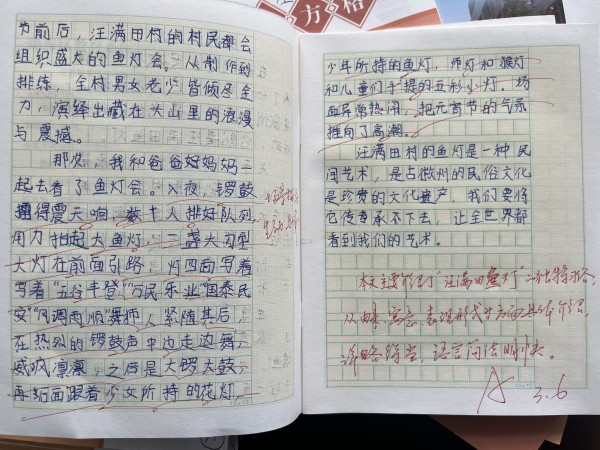 方格
为前后，汪满田村的村民都会
组织盛大的鱼灯会。从制作到
排练，全村男女老少皆倾尽全
力，演绎出藏在大山里的浪漫
与震撼。
那次，我和爸爸妈妈一
起去看了鱼灯会。入夜，锣鼓
擂得震天响，数十人排好队列
用力抬起大鱼灯，二盏大勾型
大灯在前面引路，灯四面写着
写着"五谷丰登""万民乐业""国泰民
安""风调雨顺"舞狮人紧随其后，
在热烈的锣鼓声中边走边舞，
威风凛凛，之后是大锣大鼓，
再后面跟着少女所持的花灯，
少年所持的鱼灯，狮灯和猴灯
和儿童们手提的五彩小灯。场
面异常热闹，把元宵节的气氛
推向了高潮。
汪满田村的鱼灯是一种民
间艺术，是古徽州的民俗文化
是珍贵的文化遗产，我们要将
它传支承不下去，让全世界都
看到我们的艺术。
本文主要介绍了"汪满田鱼灯"
从由来、寓意、表现形式等方面具体介绍，
详略得当，语言简洁明快。
A 3.6